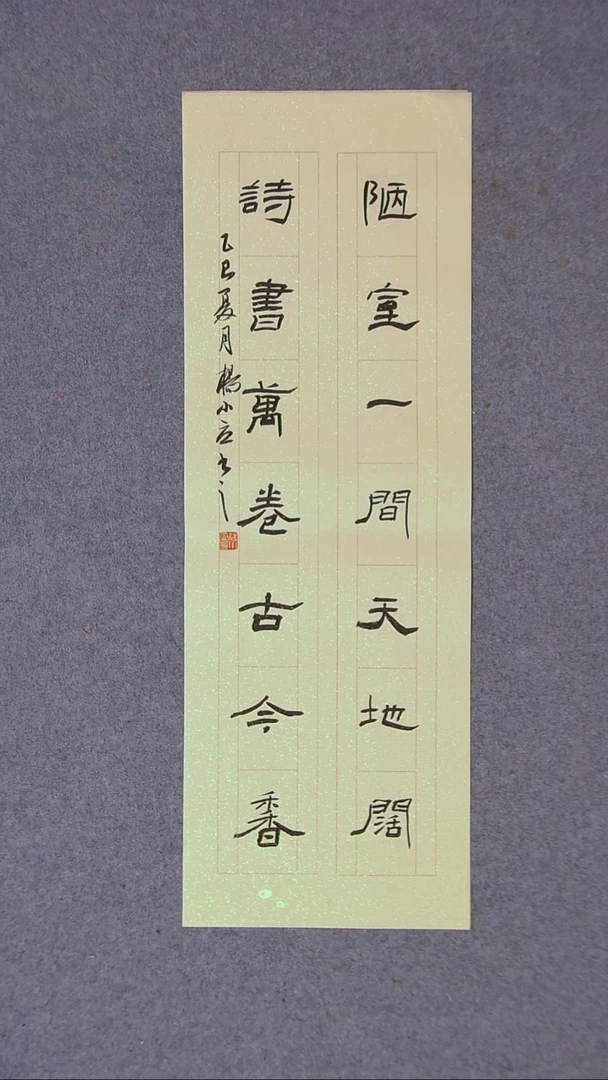 陋室一間天地闊
詩書萬卷古今香
乙巳夏月楊小立書之